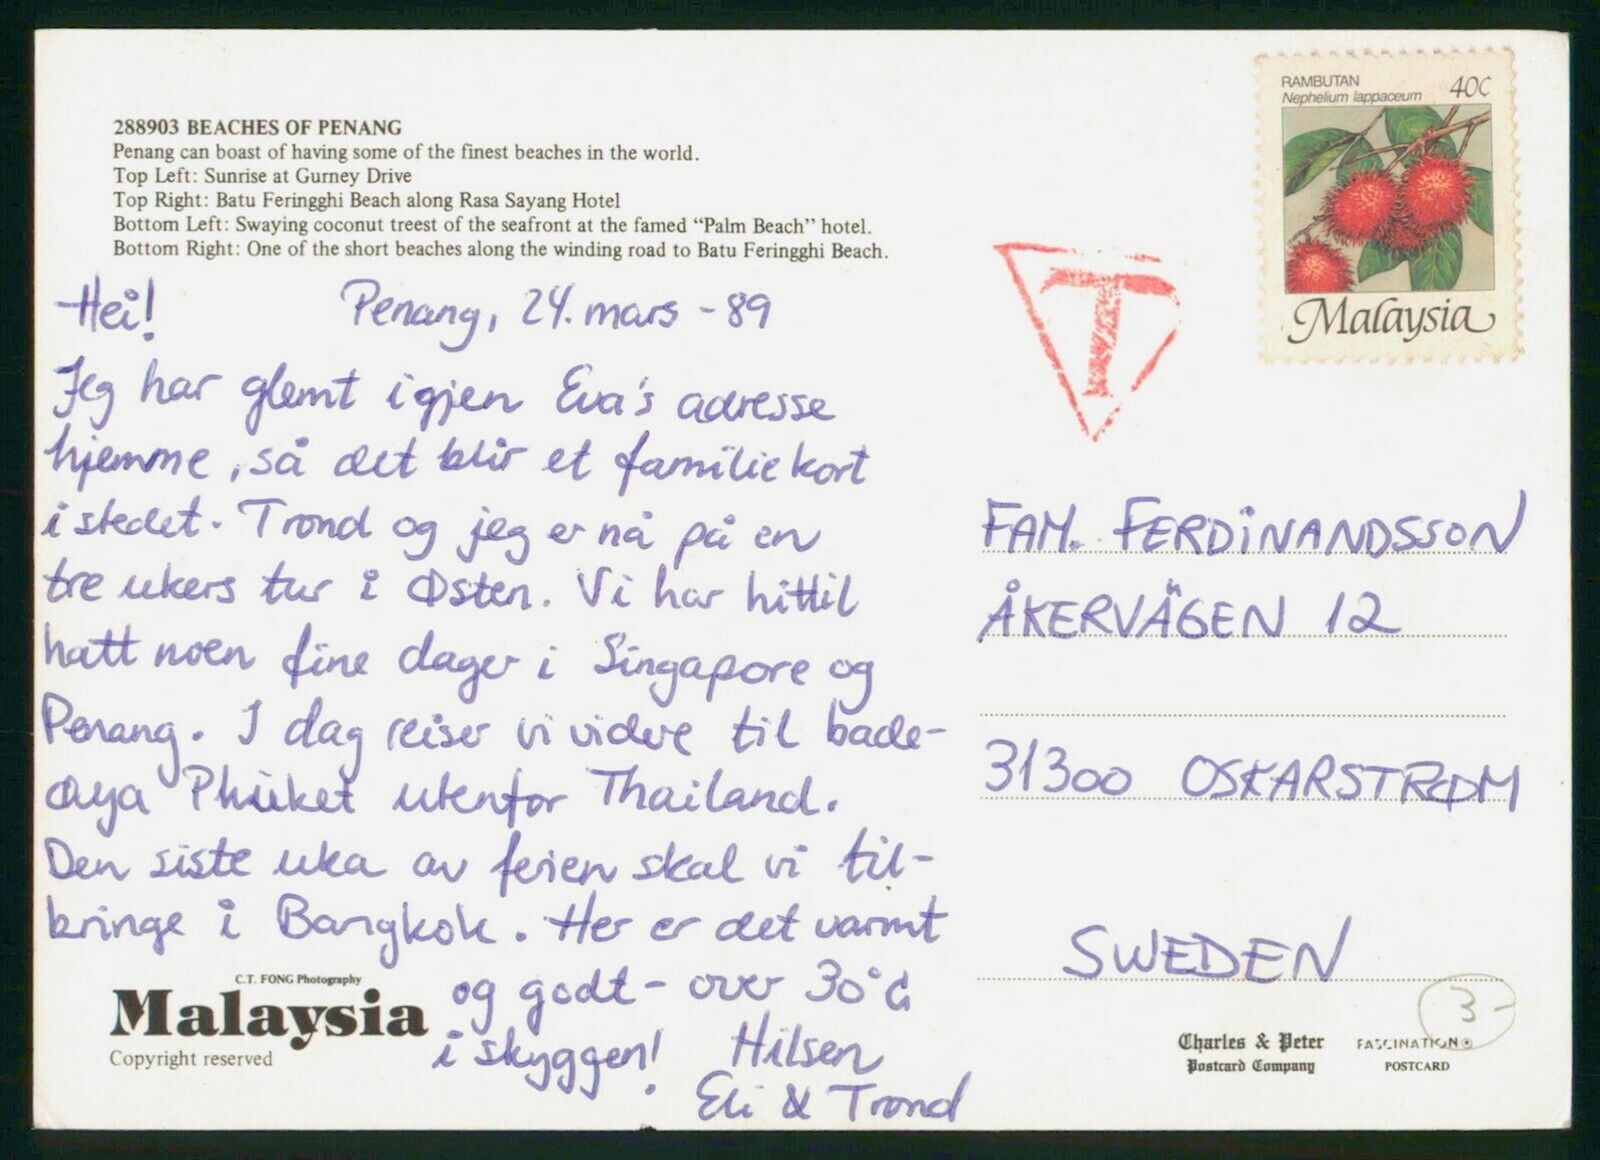 288903 BEACHES OF PENANG
Penang can boast of having some of the finest beaches in the world.
Top Left: Sunrise at Gurney Drive
Top Right: Batu Feringghi Beach along Rasa Sayang Hotel
Bottom Left: Swaying coconut treest of the seafront at the famed “Palm Beach” hotel.
Bottom Right: One of the short beaches along the winding road to Batu Feringghi Beach.
RAMBUTAN
Nephelium lappaceum 40¢
Malaysia
T
Hei! Penang, 24. mars - 89
Jeg har glemt igjen Eva's adresse
hjemme, så det blir et familiekort
i stedet. Trond og jeg er nå på en
tre ukers tur i Østen. Vi har hittil
hatt noen fine dager i Singapore og
Penang. I dag reiser vi videre til bade-
øya Phuket utenfor Thailand.
Den siste uka av ferien skal vi til-
bringe i Bangkok. Her er det varmt
og godt - over 30°C
i skyggen! Hilsen
Eli & Trond
FAM. FERDINANDSSON
ÅKERVÄGEN 12
31300 OSKARSTRØM
SWEDEN
3-
C.T. FONG Photography
Malaysia
Copyright reserved
Charles & Peter
Postcard Company
FASCINATION®
POSTCARD